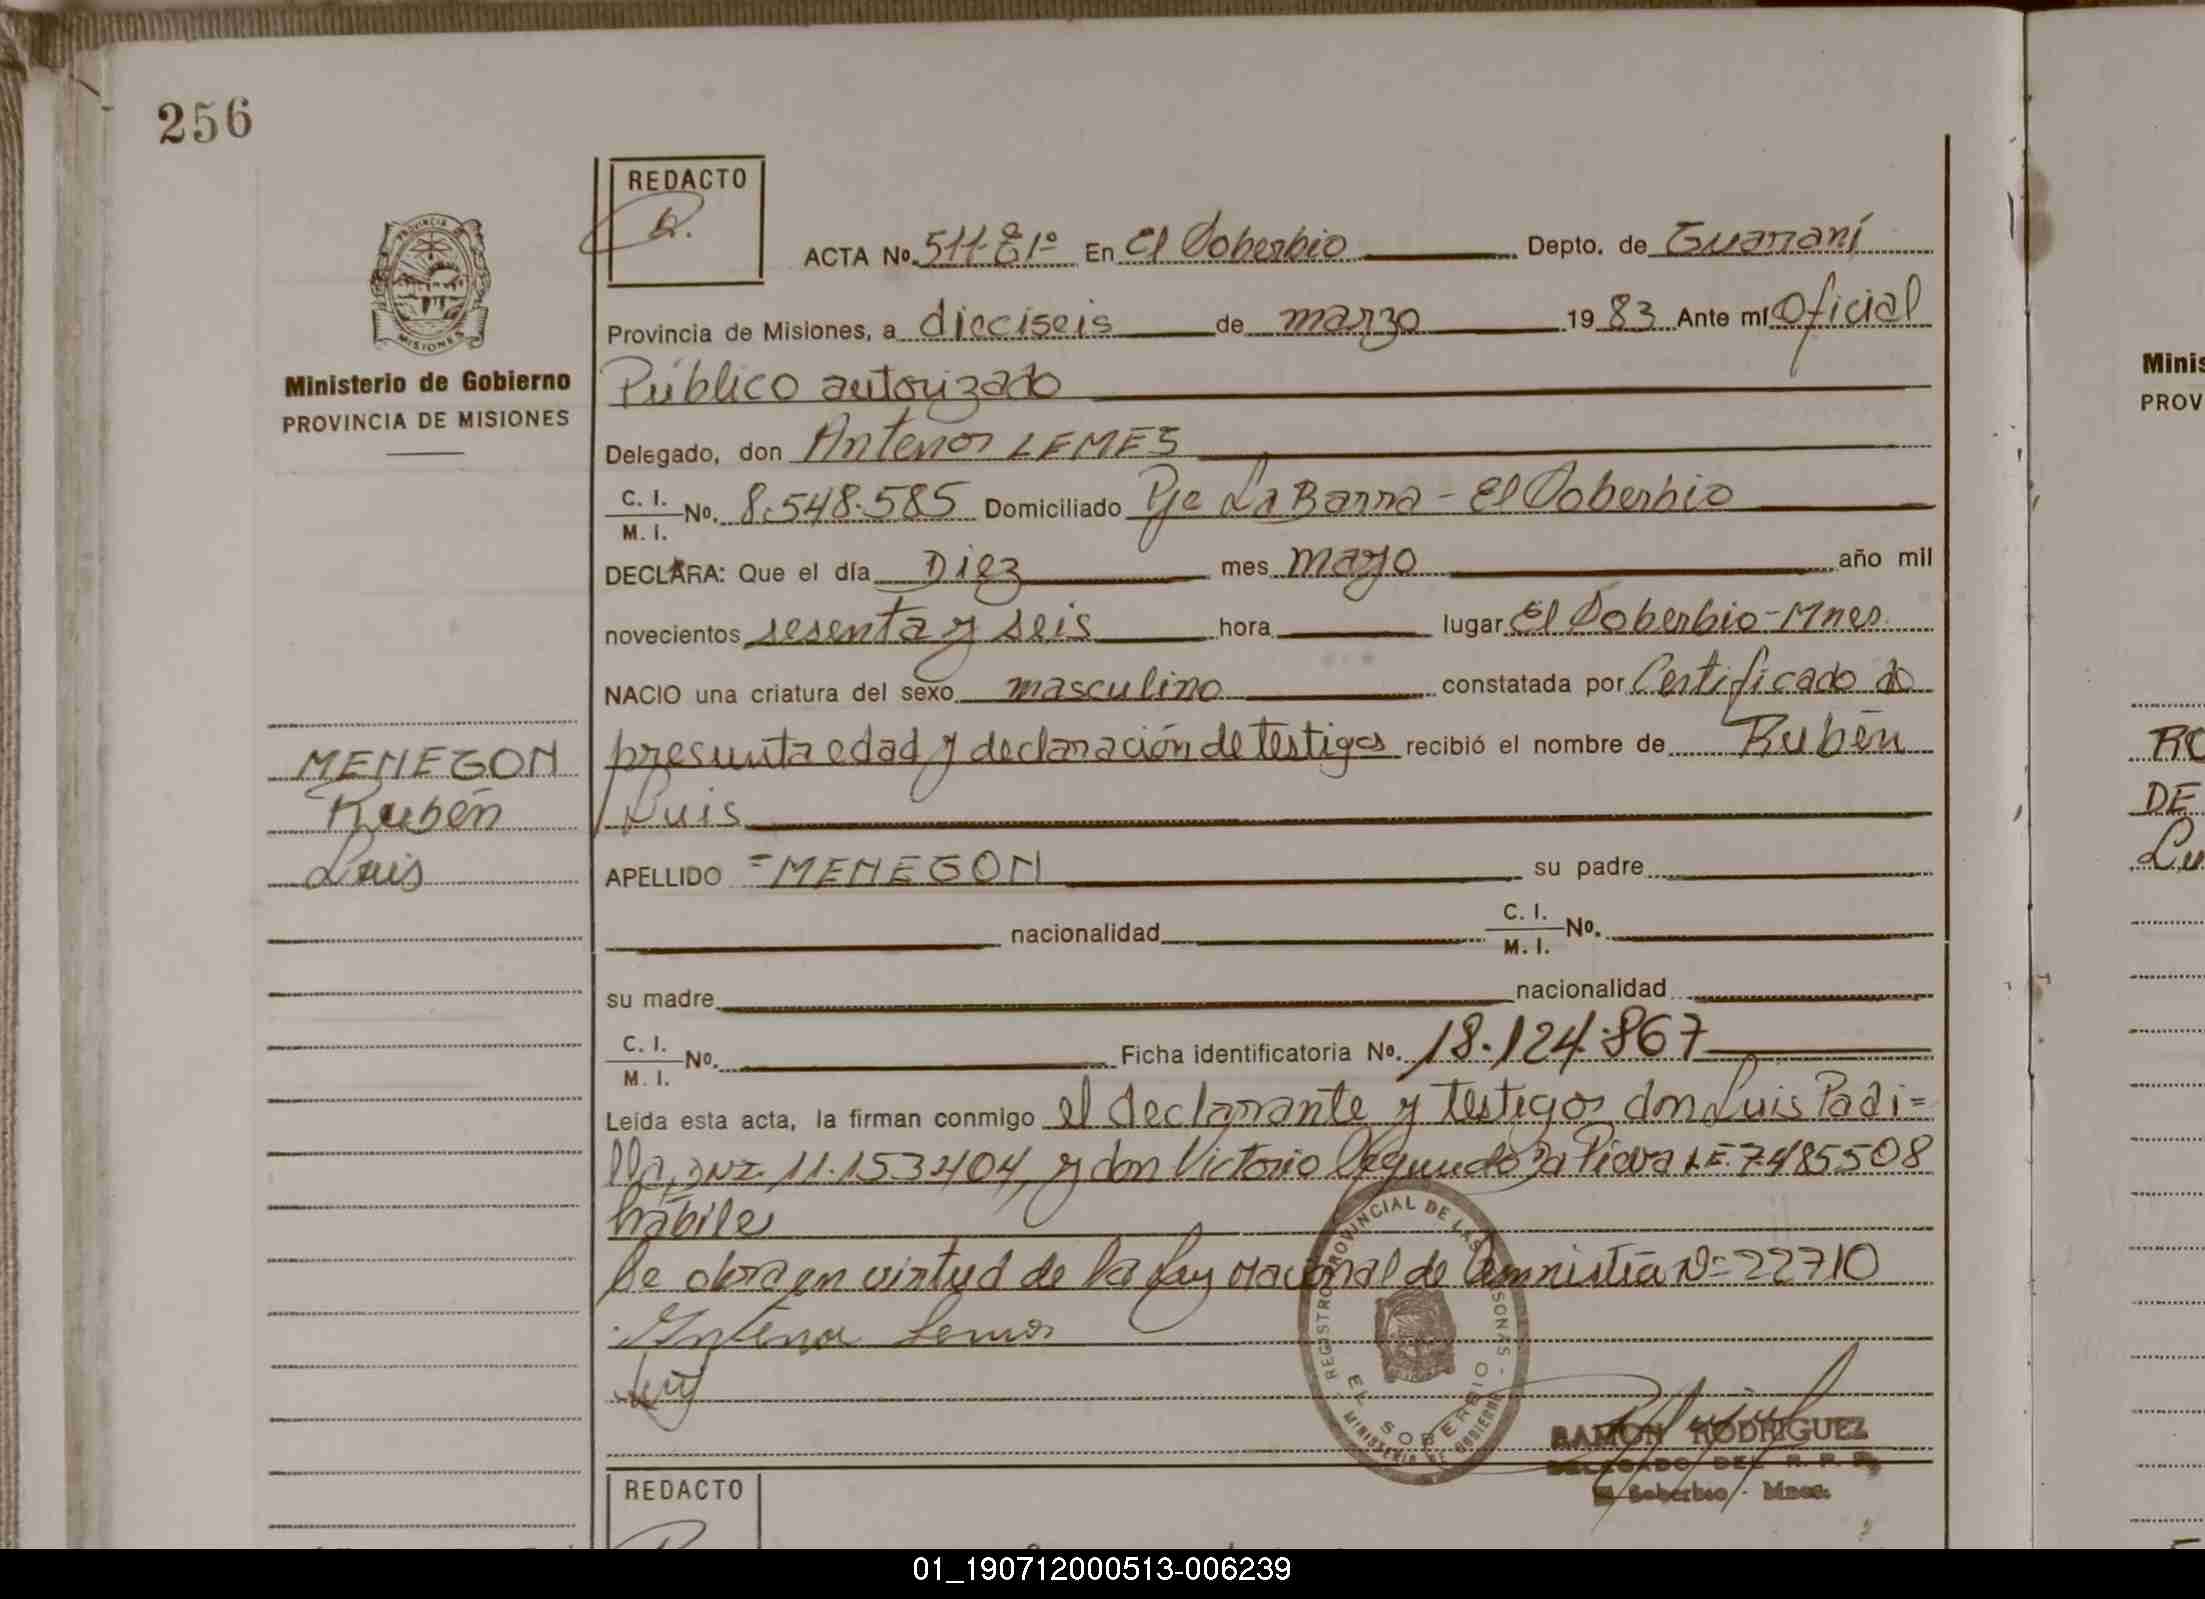 256
REDACTO
R.
ACTA No. 511-E1º En El Soberbio Depto. de Guaraní
Provincia de Misiones, a dieciseis de marzo 1983 Ante mí Oficial
Público autorizado
Delegado, don Antenor LEMES
C. I. / M. I. No. 8.548.585 Domiciliado Pje La Barra - El Soberbio
DECLARA: Que el día Diez mes mayo año mil
novecientos sesenta y seis hora lugar El Soberbio-Mnes.
NACIO una criatura del sexo masculino constatada por Certificado de
presunta edad y declaración de testigos recibió el nombre de Rubén
Luis
APELLIDO =MENEGON su padre
nacionalidad C. I. / M. I. No.
su madre nacionalidad
C. I. / M. I. No. Ficha identificatoria No. 18.124.867
Leída esta acta, la firman conmigo el declarante y testigos don Luis Padi=
lla, DNI. 11.153.404, y don Victorio Segundo Da Pieva LE. 7.485.508
hábiles
Se obra en virtud de la Ley Nacional de Amnistía Nº 22710
Antenor Lemes
PROVINCIA
MISIONES
Ministerio de Gobierno
PROVINCIA DE MISIONES
MENEGON
Rubén
Luis
REGISTRO PROVINCIAL DE LAS PERSONAS
EL SOBERBIO
MINISTERIO DE GOBIERNO
RAMON RODRIGUEZ
DELEGADO DEL R. P. P.
El Soberbio - Mnes.
REDACTO
Minis
PROV
RO
DE
Lu
01_190712000513-006239